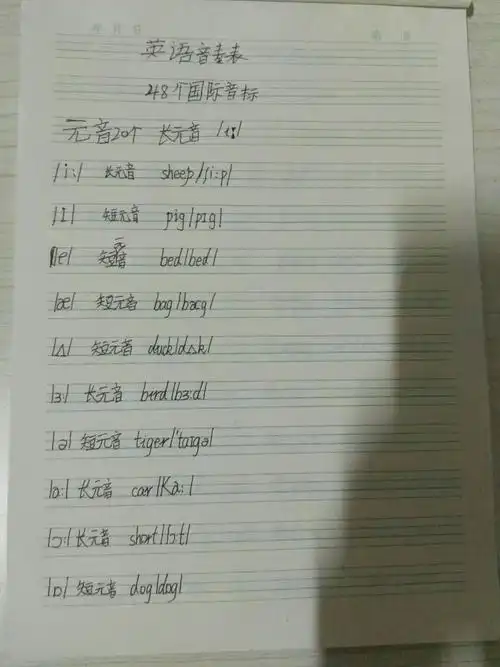 英语音素表
48个国际音标
元音20个 长元音 /i:/
/i:/ 长元音 sheep/ʃi:p/
/I/ 短元音 pig/pIg/
/e/ 短元音 bed/bed/
/æ/ 短元音 bag/bæg/
/ʌ/ 短元音 duck/dʌk/
/ɜ:/ 长元音 bird/bɜ:d/
/ə/ 短元音 tiger/'taɪgə/
/ɑ:/ 长元音 car/Kɑ:/
/ɔ:/ 长元音 short/ʃɔ:t/
/ɒ/ 短元音 dog/dɒg/